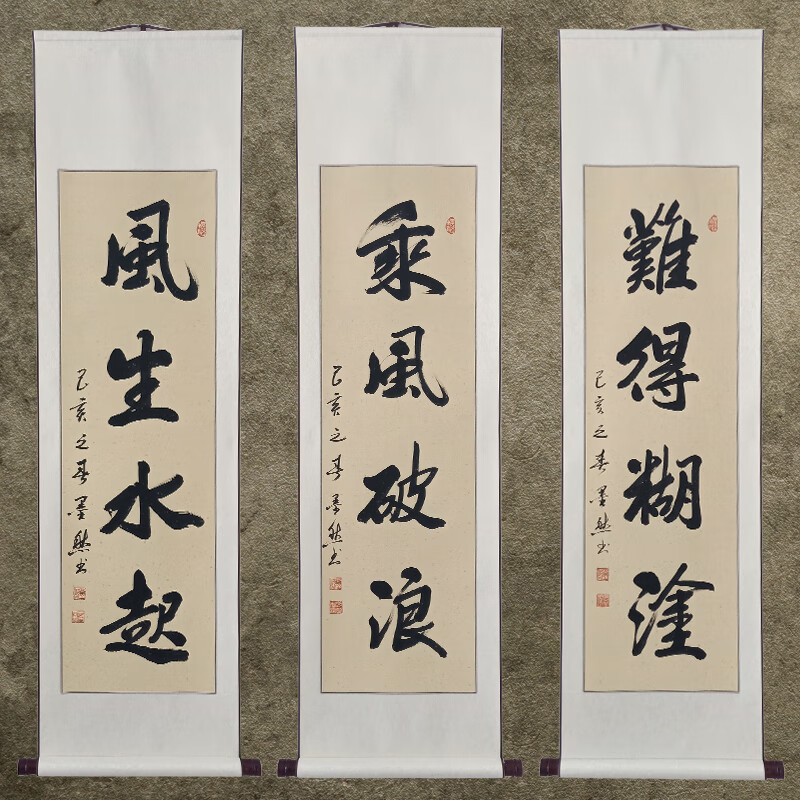 風生水起
己亥之春墨然书
乘風破浪
己亥之春墨然书
難得糊塗
己亥之春墨然书